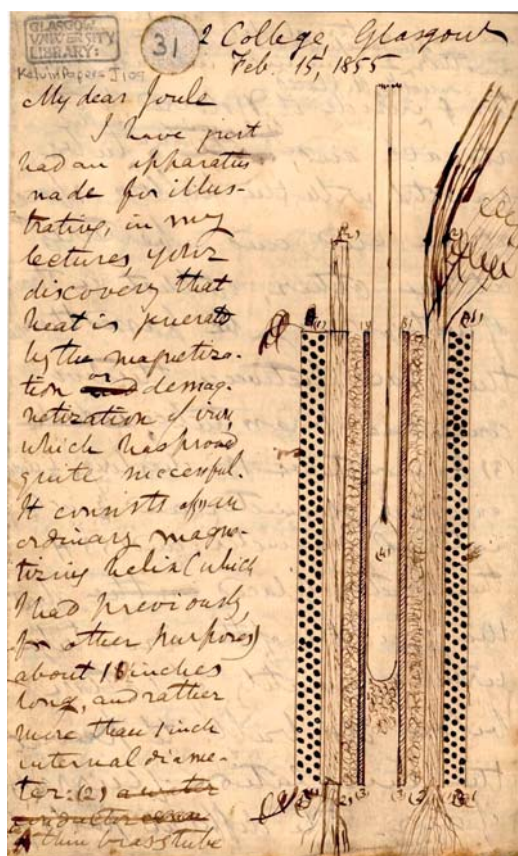 GLASGOW
UNIVERSITY
LIBRARY:
Kelvin Papers J109
31
2 College, Glasgow
Feb. 15, 1855
My dear Joule
I have just
had an apparatus
made for illus-
trating, in my
lectures, your
discovery that
heat is generated
by the magnetiza-
tion or demag-
netization of iron,
which has proved
quite successful.
It consists of an
ordinary magne-
tizing helix (which
I had previously,
for other purposes)
about 18 inches
long, and rather
more than 1 inch
internal diame-
ter: (2) a water
A thin brass tube
(2)
(1)
(3)
(3)
(4)
(2)
(3)
(3)
(2)